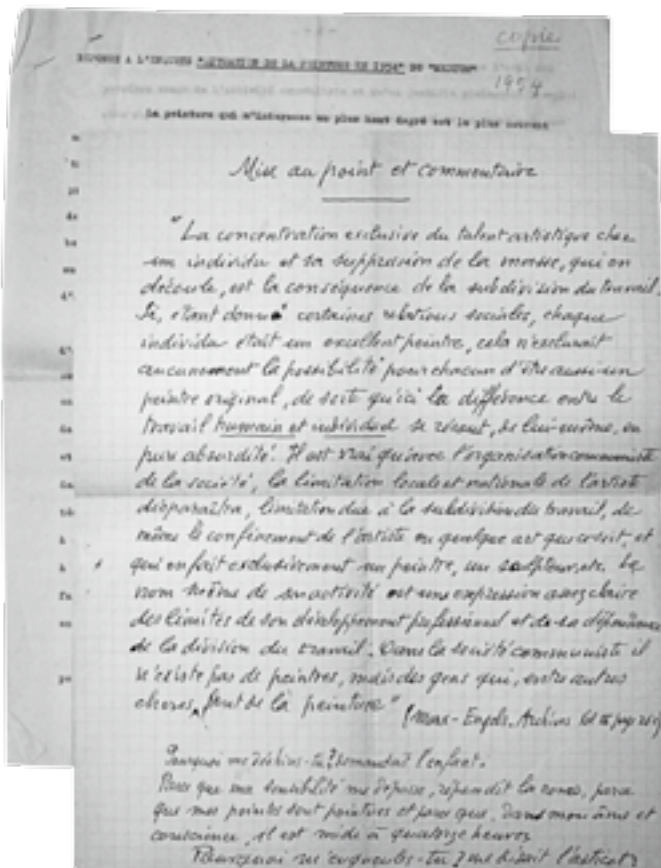 copie
REPONSE A L'ENQUETE "SITUATION DE LA PEINTURE EN 1954" DU "MEDIUM"
1954
La peinture qui m'intéresse au plus haut degré est le plus souvent
Mise au point et commentaire
"La concentration exclusive du talent artistique chez
un individu et sa suppression de la masse, qui en
découle, est la conséquence de la subdivision du travail.
Si, étant donné certaines relations sociales, chaque
individu était un excellent peintre, cela n'exclurait
aucunement la possibilité pour chacun d'être aussi un
peintre original, de sorte qu'ici la différence entre le
travail humain et individuel se résout, de lui-même, en
pure absurdité. Il est vrai qu'avec l'organisation communiste
de la société, la limitation locale et nationale de l'artiste
disparaîtra, limitation due à la subdivision du travail, de
même le confinement de l'artiste en quelque art que ce soit, et
qui en fait exclusivement un peintre, un sculpteur, etc. Le
nom même de son activité est une expression assez claire
des limites de son développement professionnel et de sa dépendance
de la division du travail. Dans la société communiste il
n'existe pas de peintres, mais des gens qui, entre autres
choses, font de la peinture"
(Marx-Engels, Archives
Pourquoi me déchires-tu? demandait l'enfant.
Parce que ma sensibilité me dépasse, répondit la ronce, parce
que mes pointes sont pointues et parce que, dans mon âme et
conscience, il est midi à quatorze heures
Pourquoi m'engueules-tu? me disait l'asticot